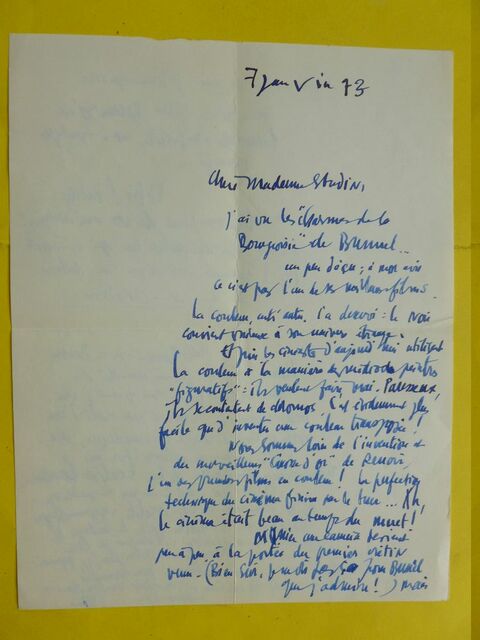 7 janvier 73
Chère Madame
j'ai vu les "Charmes de la
Bourgeoisie" de Bunuel...
un peu déçu; à mon avis
ce n'est pas l'un de ses meilleurs films.
La couleur, entr'autre, l'a desservi : le noir
convient mieux à son univers étrange.
Et puis les cinéastes d'aujourd'hui utilisent
la couleur à la manière des peintres
"figuratifs" : ils veulent faire vrai. Paresseux,
ils se contentent de chromos. C'est évidemment plus
facile que d'inventer une couleur transposée!
Nous sommes loin de l'invention et
du merveilleux "Carrosse d'or" de Renoir,
l'un des premiers films en couleur! La perfection
technique du cinéma finira par le tuer... Ah,
le cinéma était beau au temps du muet!
une caméra devient
peu à peu à la portée du premier crétin
venu. (Bien sûr, je ne dis pas ça pour Bunuel
que j'admire!) mais